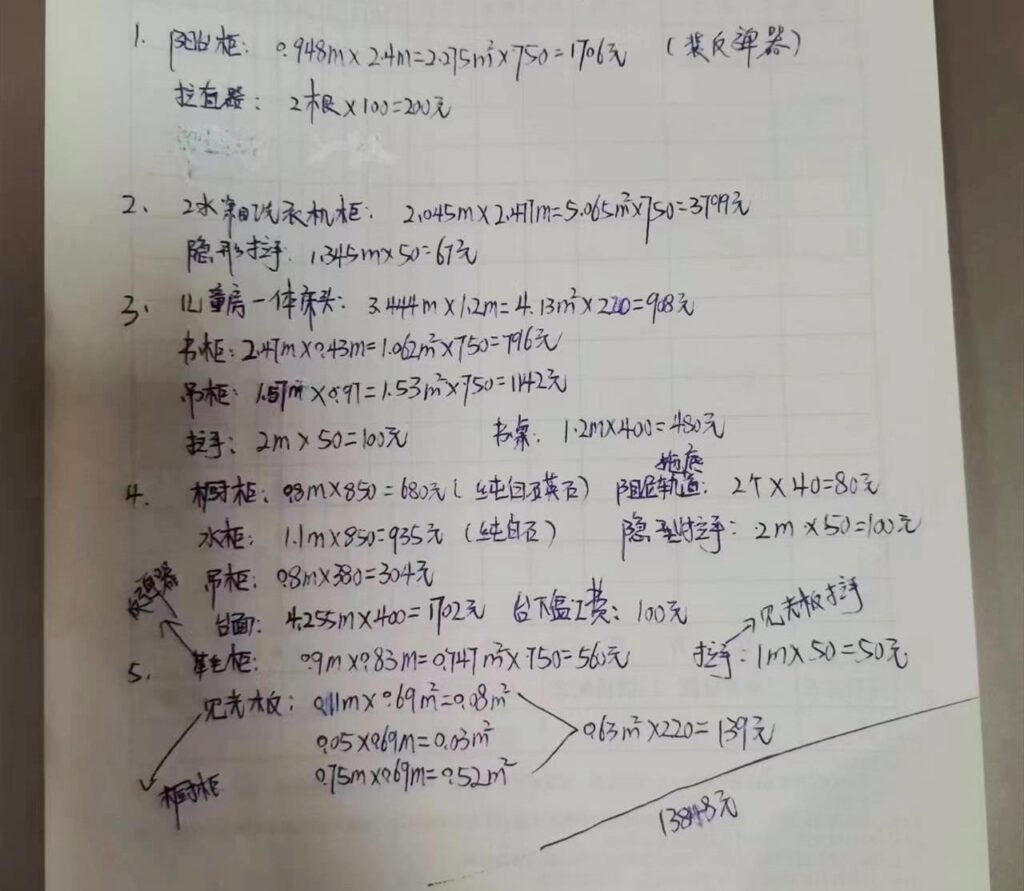 1. 阳台柜: 0.948m×2.4m=2.275m²×750=1706元 (装反弹器)
拉直器: 2根×100=200元
2. 2水箱洗衣机柜: 2.045m×2.477m=5.065m²×750=3799元
隐形拉手: 1.345m×50=67元
3. 儿童房一体床头: 3.444m×1.2m=4.13m²×220=908元
书柜: 2.47m×0.43m=1.062m²×750=796元
吊柜: 1.57m×0.97=1.53m²×750=1142元
拉手: 2m×50=100元 书桌: 1.2m×400=480元
4. 橱柜: 0.8m×850=680元(纯白石英石) 阻尼轨道: 2个×40=80元
水柜: 1.1m×850=935元 (纯白石) 隐型拉手: 2m×50=100元
吊柜: 0.8m×380=304元
反弹器
台面: 4.255m×400=1702元 台下盆工费: 100元
见光板拉手
5. 0.9m×0.83m=0.747m²×750=560元 拉手: 1m×50=50元
见光板: 0.11m×0.69m²=0.08m²
0.05×0.69m=0.03m² 0.63m²×220=139元
0.75m×0.69m=0.52m²
橱柜